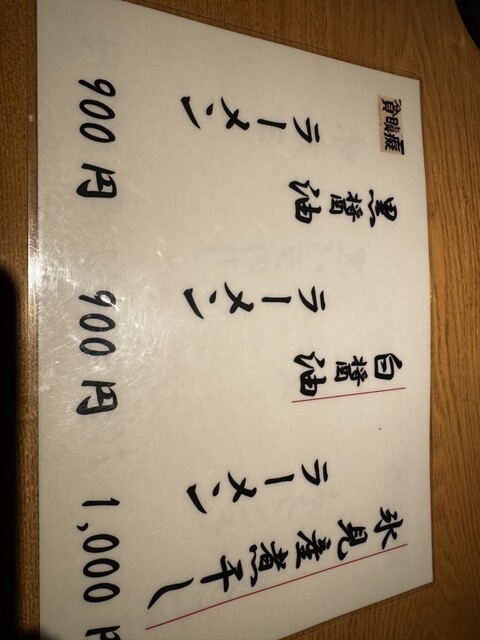 氷見産煮干し
ラーメン
1,000円
白醤油
ラーメン
900円
黒醤油
ラーメン
900円
貪瞋癡